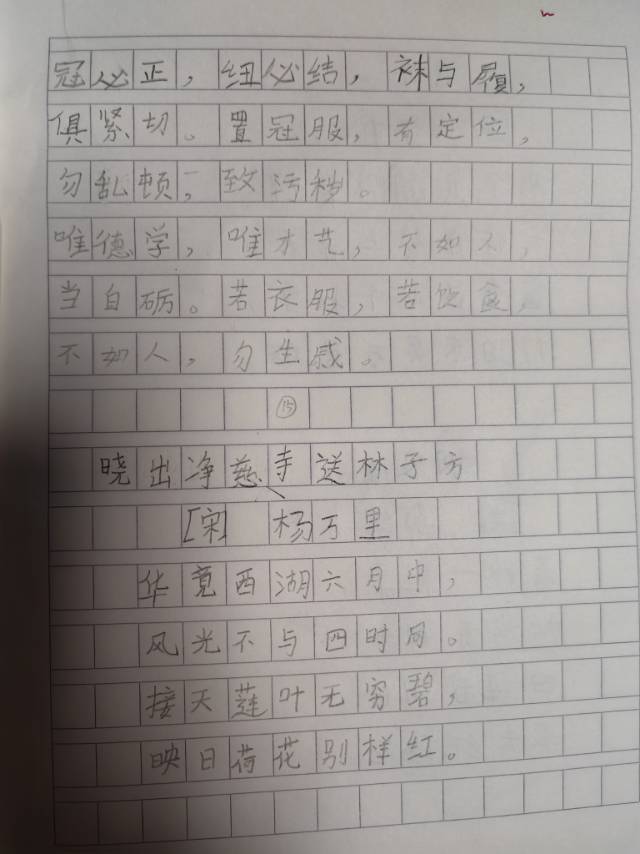 冠必正，纽必结，袜与履，
俱紧切。置冠服，有定位，
勿乱顿，致污秽。
唯德学，唯才艺，不如人，
当自砺。若衣服，若饮食，
不如人，勿生戚。
⑮
晓出净慈寺送林子方
[宋] 杨万里
毕竟西湖六月中，
风光不与四时同。
接天莲叶无穷碧，
映日荷花别样红。